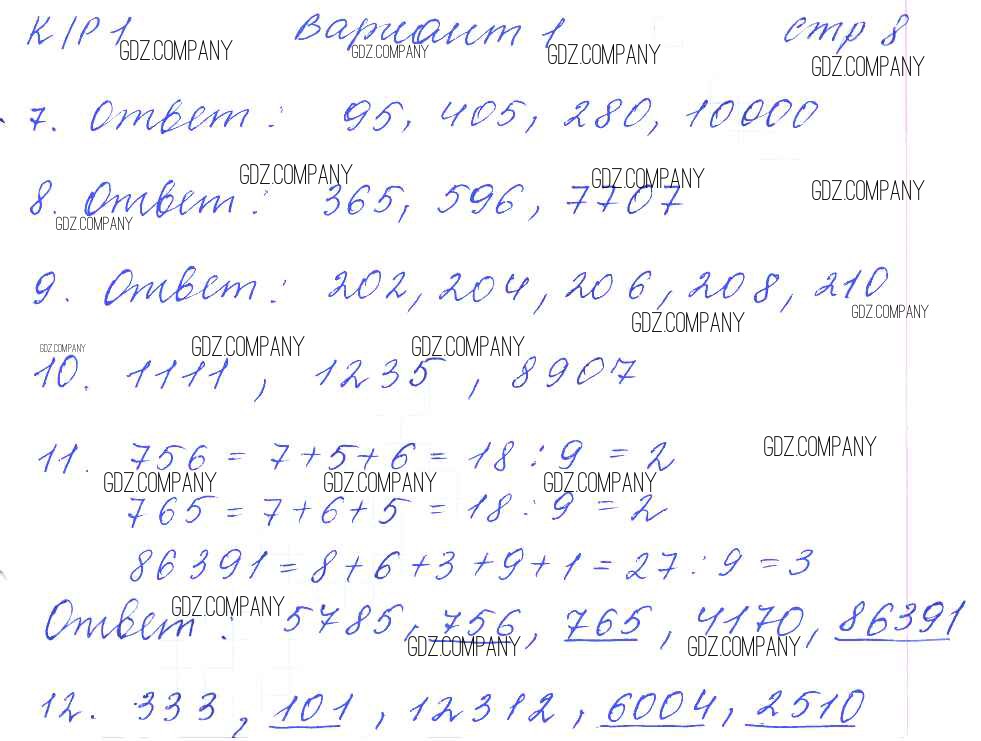 К/Р 1 Вариант 1 стр 8
GDZ.COMPANY GDZ.COMPANY GDZ.COMPANY GDZ.COMPANY
7. Ответ: 95, 405, 280, 10000
GDZ.COMPANY GDZ.COMPANY GDZ.COMPANY
8. Ответ: 365, 596, 7707
GDZ.COMPANY
9. Ответ: 202, 204, 206, 208, 210
GDZ.COMPANY GDZ.COMPANY
GDZ.COMPANY GDZ.COMPANY GDZ.COMPANY
10. 1111, 1235, 8907
11. 756 = 7+5+6 = 18 : 9 = 2
GDZ.COMPANY
GDZ.COMPANY GDZ.COMPANY GDZ.COMPANY
765 = 7+6+5 = 18 : 9 = 2
86391 = 8+6+3+9+1 = 27 : 9 = 3
GDZ.COMPANY
Ответ: 5785, 756, 765, 4170, 86391
GDZ.COMPANY GDZ.COMPANY
12. 333, 101, 12312, 6004, 2510